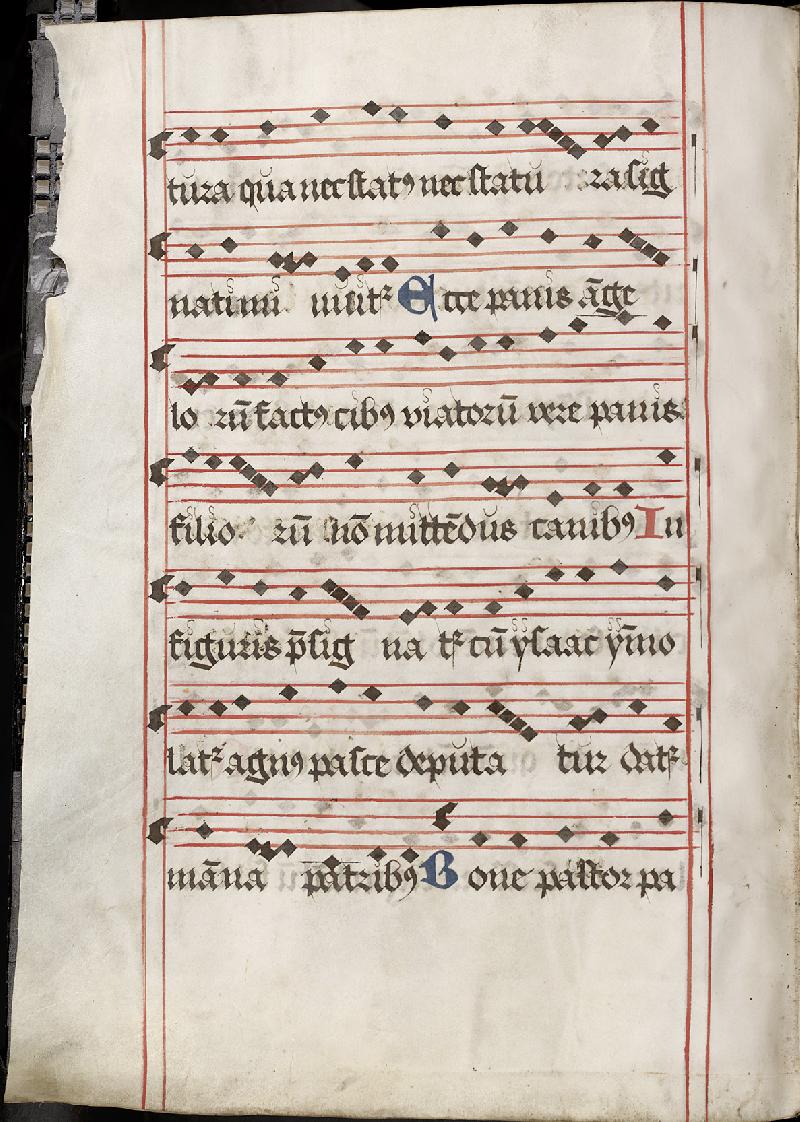 tura qua nec statꝯ nec statu ra sig
nati mi nuitꝛ Ecce panis āge
lo rū factꝯ cibꝯ viatorū vere panis
filio rū nō mittēdus canibꝯ In
figuris p̄sig na tꝛ cū ysaac ȳmo
latꝛ agnꝯ pasce deputa tur datꝛ
māna patribꝯ Bone pastor pa